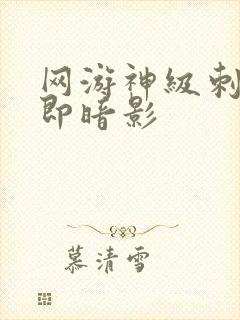 网游神级刺
即暗影
慕清雪